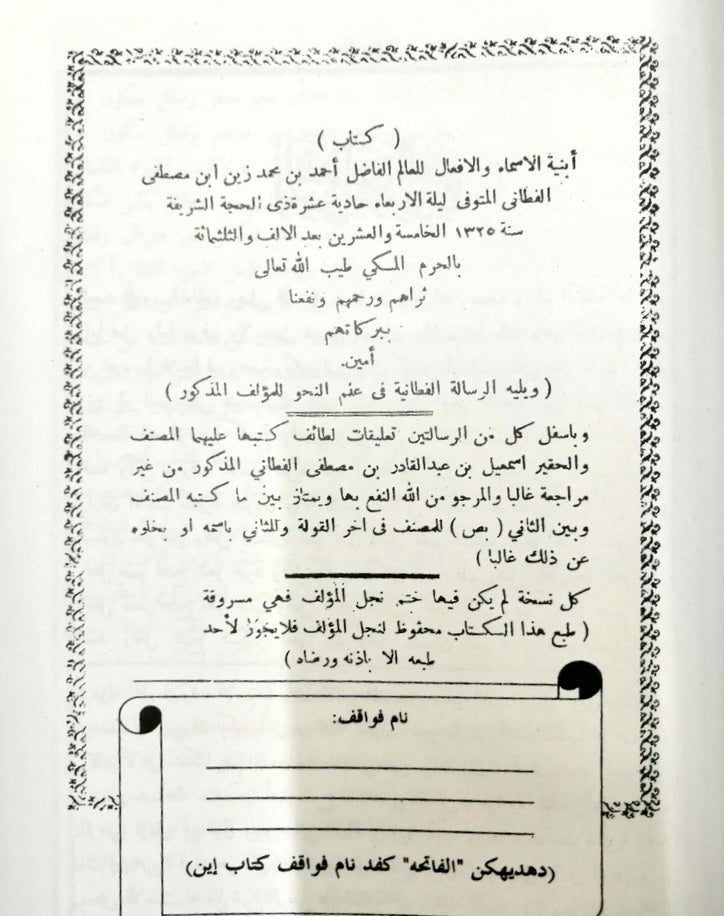 ( كتاب )
أبنية الاسماء والافعال للعالم الفاضل أحمد بن محمد زين ابن مصطفى
الفطانى المتوفى ليلة الاربعاء حادية عشرة ذى الحجة الشريفة
سنة ١٣٢٥ الخامسة والعشرين بعد الالف والثلثمائة
بالحرم المسكي طيب الله تعالى
ثراهم ورحمهم ونفعنا
ببركاتهم
أمين.
( ويليه الرسالة الفطانية فى علم النحو للمؤلف المذكور )
وباسفل كل من الرسالتين تعليقات لطائف كتبها عليهما المصنف
والحقير اسمعيل بن عبدالقادر بن مصطفى الفطاني المذكور من غير
مراجعة غالبا والمرجو من الله النفع بها ويمتاز بين ما كتبه المصنف
وبين الثاني ( بص ) للمصنف فى اخر القولة وللثاني باسمه او بخلوه
عن ذلك غالبا )
كل نسخة لم يكن فيها ختم نجل المؤلف فهي مسروقة
( طبع هذا السكتاب محفوظ لنجل المؤلف فلايجوز لأحد
طبعه الا باذنه ورضاه )
نام فواقف:
(دهديهكن "الفاتحه" كفد نام فواقف كتاب إين)